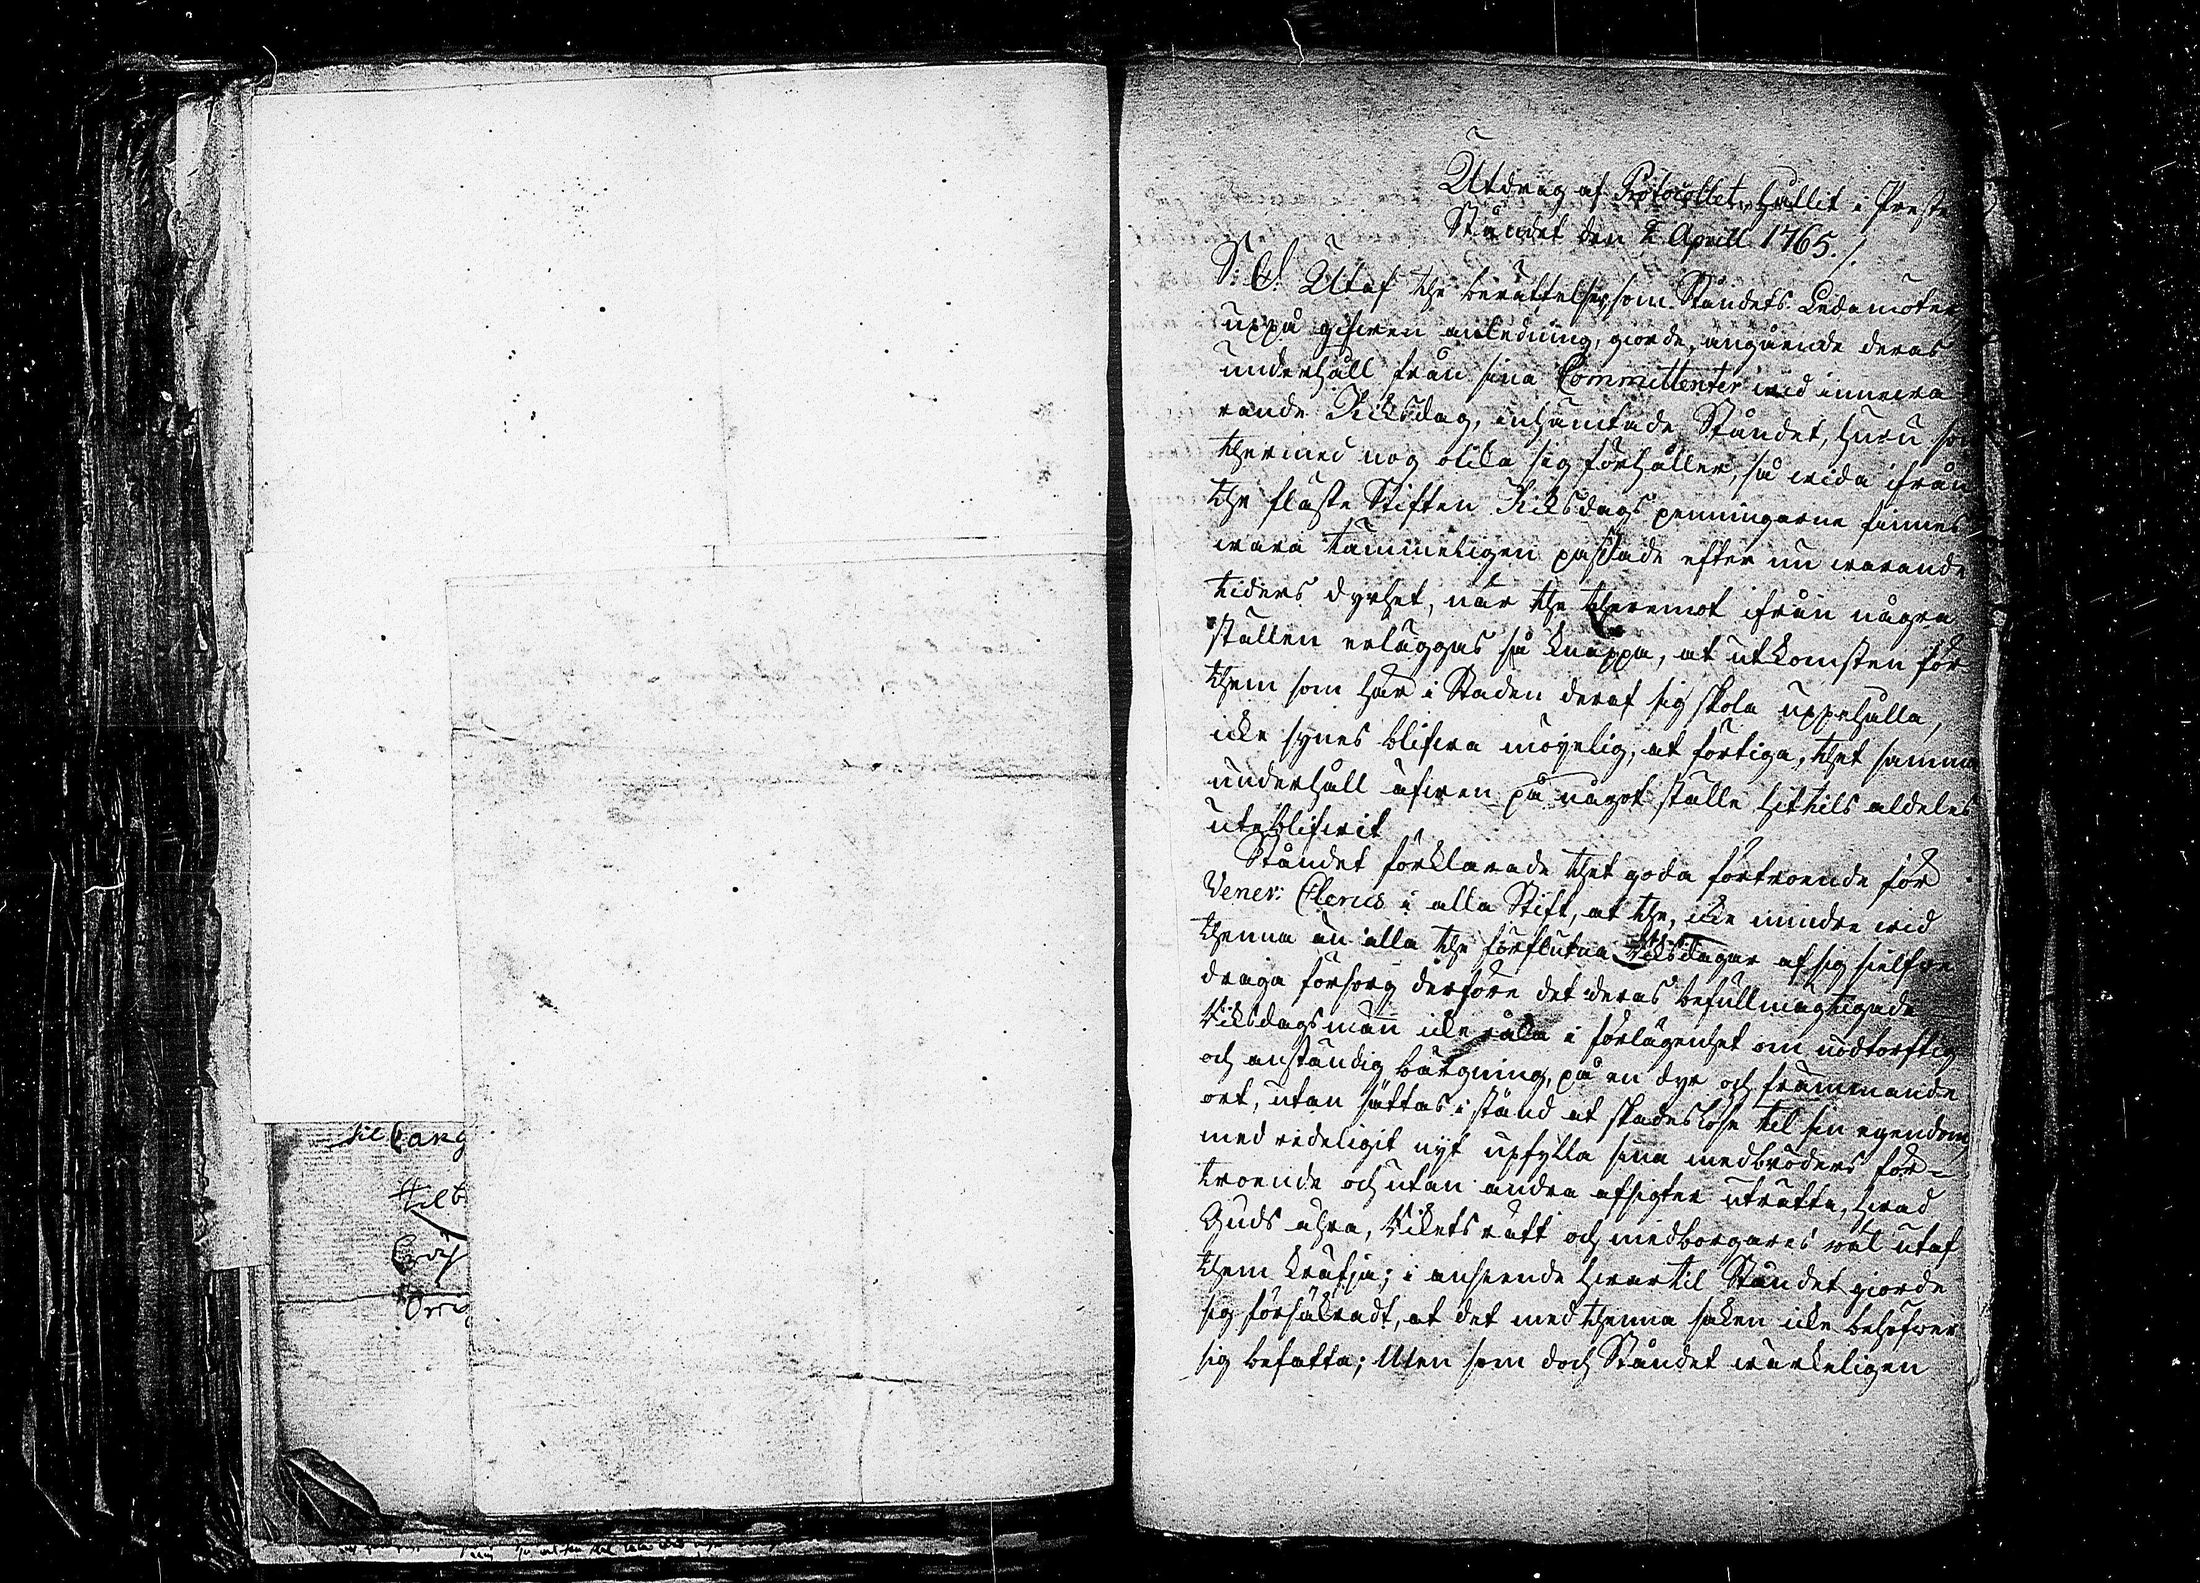 til Carg
til b
Utdrag af Protocollet, hållit i Preste
Ståndet den 2 April 1765./.
S: C: Utaf the berättelser, som Ståndets Ledamöter
uppå gifwen anledning, giorde, angående deras
underhåll från sina Committenter wid innewa
rande Riksdag, inhämtade Ståndet, huru som
thermed nog olika sig förhåller, så wida ifrån
the flästa Stiften Riksdags penningarne finnes
wara tämmeligen passade efter nu warande
tiders dyrhet, när the theremot ifrån några
ställen erläggas så knappa, at utkomsten för
them som här i Staden deraf sig skola uppehålla,
icke synes blifwa möyelig, at förtiga, thet samma
underhåll äfwen på något ställe hittils aldeles
uteblifwit
Ståndet förklarade thet goda förtroende för
Vener: Clerus i alla Stift, at the, icke mindre wid
thenna än alla the förflutna Riksdagar af sig sielfwe
draga försorg derföre det deras befullmägtigade
Riksdagsmän icke råka i förlägenhet om nödtorftig
och anständig bärgning, på en dyr och främmande
ort, utan sättas i stånd at skadeslöse til sin egendom,
med redeligit nyt upfylla sina medbröders för-
troende och utan andra afsigter uträtta, hwad
Guds ähra, Rikets rätt och medborgares wäl utaf
them kräfja; i anseende hwartil Ståndet giorde
sig försäkradt, at det med thenna saken icke behöfwer
sig befatta; Uten som doch Ståndet wärkeligen